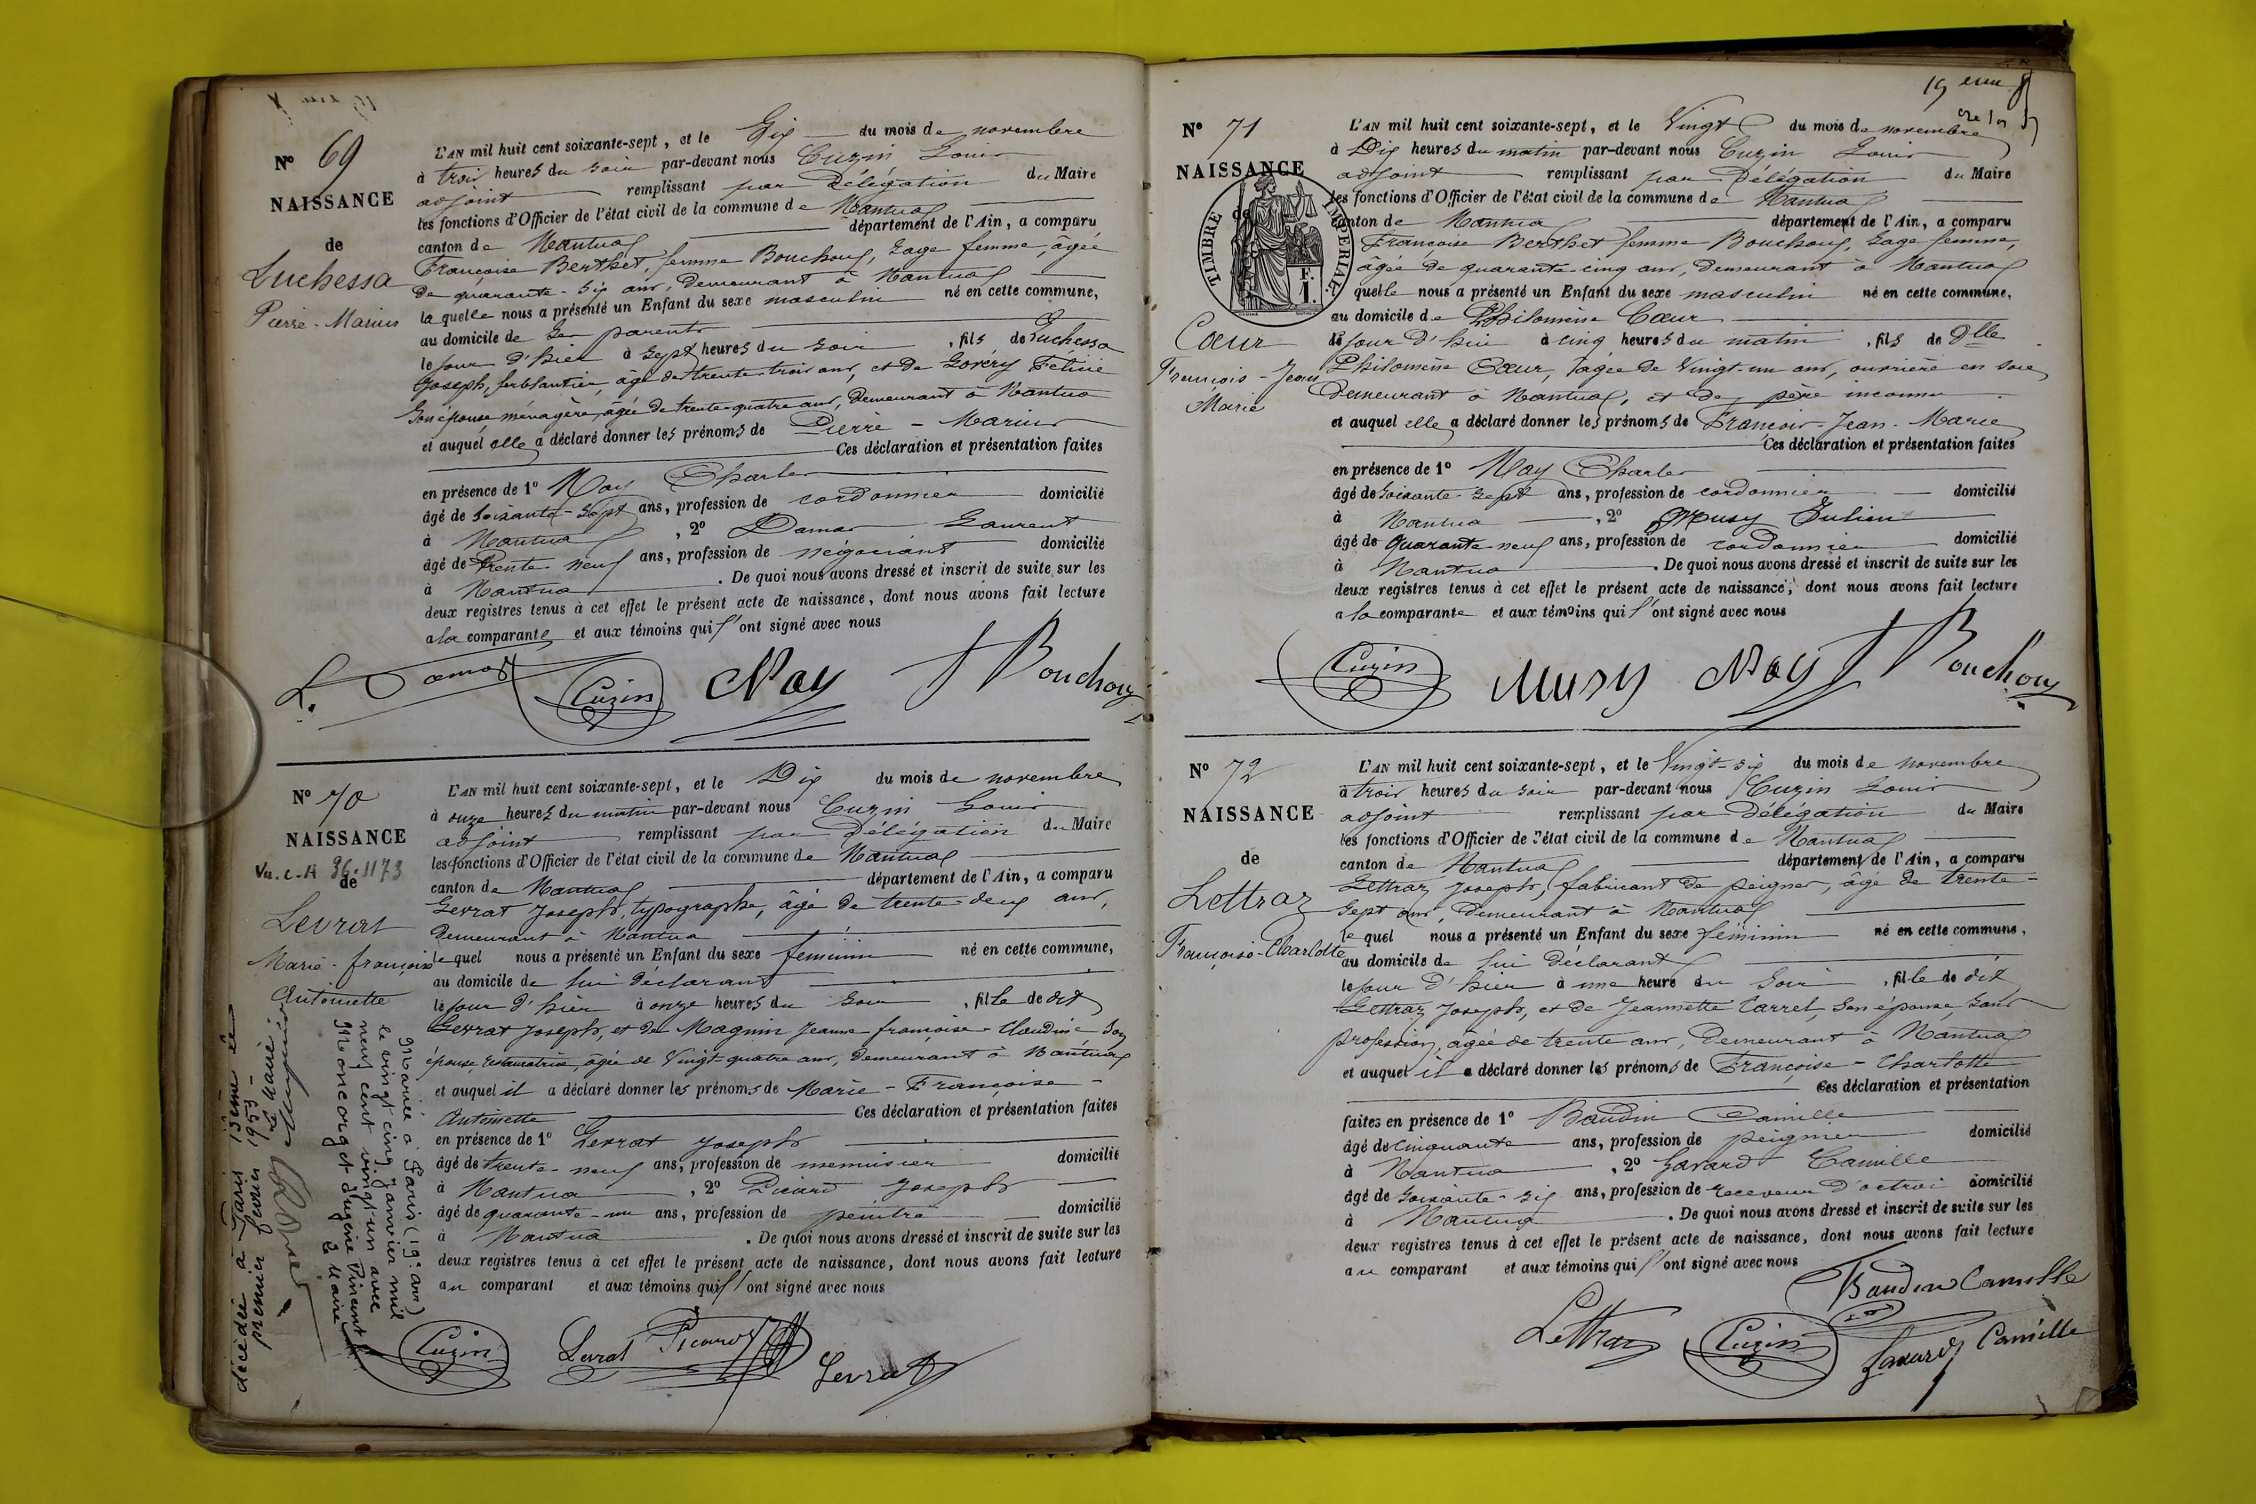 N° 69
NAISSANCE
de
Luchessa
Pierre-Marius
L'AN mil huit cent soixante-sept, et le Dix du mois de novembre
à trois heures du soir par-devant nous Cuzin Louis
adjoint remplissant par Délégation du Maire
les fonctions d'Officier de l'état civil de la commune de Nantua
canton de Nantua département de l'Ain, a comparu
Françoise Berthet, femme Bouchouy, sage femme, âgée
de quarante-six ans, demeurant à Nantua
la quelle nous a présenté un Enfant du sexe masculin né en cette commune,
au domicile de ses parents
le jour d'hier à sept heures du soir, fils de Luchessa
Joseph, ferblantier, âgé de trente-trois ans, et de Félicie
son épouse ménagère, âgée de trente-quatre ans, demeurant à Nantua
et auquel elle a déclaré donner les prénoms de Pierre-Marius
Ces déclaration et présentation faites
en présence de 1° Nay Charles
âgé de soixante-sept ans, profession de cordonnier domicilié
à Nantua, 2° Damas Laurent
âgé de trente-neuf ans, profession de négociant domicilié
à Nantua. De quoi nous avons dressé et inscrit de suite sur les
deux registres tenus à cet effet le présent acte de naissance, dont nous avons fait lecture
a la comparante et aux témoins qui l'ont signé avec nous
L. Damas Cuzin Nay f Bouchouy
N° 70
NAISSANCE
Vu. C.A 36.1173
de
Levrat
Marie-françoise
Antoinette
Mariée à Paris (19e arr)
le vingt cinq janvier mil
neuf cent vingt-un avec
Eugène Vincent
Le Maire
décédée à Paris 13ème le
premier février 1953
Le Maire
L'AN mil huit cent soixante-sept, et le Dix du mois de novembre
à onze heures du matin par-devant nous Cuzin Louis
adjoint remplissant par Délégation du Maire
les fonctions d'Officier de l'état civil de la commune de Nantua
canton de Nantua département de l'Ain, a comparu
Levrat Joseph, typographe, âgé de trente-deux ans,
demeurant à Nantua
le quel nous a présenté un Enfant du sexe féminin né en cette commune,
au domicile de lui déclarant
le jour d'hier à onze heures du soir, fille de dit
Levrat Joseph, et de Magnin Jeanne-françoise-Claudine son
épouse, âgée de vingt-quatre ans, demeurant à Nantua
et auquel il a déclaré donner les prénoms de Marie-Françoise-
Antoinette Ces déclaration et présentation faites
en présence de 1° Levrat Joseph
âgé de trente-neuf ans, profession de menuisier domicilié
à Nantua, 2° Picard Joseph
âgé de quarante-un ans, profession de peintre domicilié
à Nantua. De quoi nous avons dressé et inscrit de suite sur les
deux registres tenus à cet effet le présent acte de naissance, dont nous avons fait lecture
au comparant et aux témoins qui l'ont signé avec nous
Cuzin Levrat Picard Levrat
N° 71
NAISSANCE
de
TIMBRE IMPÉRIAL
F. 1.
Cœur
François-Jean
Marie
L'AN mil huit cent soixante-sept, et le Vingt du mois de novembre
à Dix heures du matin par-devant nous Cuzin Louis
adjoint remplissant par Délégation du Maire
les fonctions d'Officier de l'état civil de la commune de Nantua
canton de Nantua département de l'Ain, a comparu
Françoise Berthet femme Bouchouy, sage femme,
âgée de quarante-cinq ans, demeurant à Nantua
quelle nous a présenté un Enfant du sexe masculin né en cette commune,
au domicile de Philomène Cœur
le jour d'hier à cinq heures du matin, fils de Dlle
Philomène Cœur, âgée de vingt-un ans, ouvrière en soie
demeurant à Nantua, et de père inconnu
et auquel elle a déclaré donner les prénoms de François-Jean-Marie
Ces déclaration et présentation faites
en présence de 1° Nay Charles
âgé de soixante-sept ans, profession de cordonnier domicilié
à Nantua, 2° Musy Julien
âgé de quarante-neuf ans, profession de cordonnier domicilié
à Nantua. De quoi nous avons dressé et inscrit de suite sur les
deux registres tenus à cet effet le présent acte de naissance, dont nous avons fait lecture
a la comparante et aux témoins qui l'ont signé avec nous
Cuzin Musy Nay f Bouchouy
N° 72
NAISSANCE
de
Lettraz
Françoise-Charlotte
L'AN mil huit cent soixante-sept, et le Vingt-six du mois de novembre
à trois heures du soir par-devant nous Cuzin Louis
adjoint remplissant par Délégation du Maire
les fonctions d'Officier de l'état civil de la commune de Nantua
canton de Nantua département de l'Ain, a comparu
Lettraz Joseph, fabricant de peignes, âgé de trente-
sept ans, demeurant à Nantua
le quel nous a présenté un Enfant du sexe féminin né en cette commune,
au domicile de lui déclarant
le jour d'hier à une heure du soir, fille de dit
Lettraz Joseph, et de Jeannette Carrel son épouse, sans
profession, âgée de trente ans, demeurant à Nantua
et auquel il a déclaré donner les prénoms de Françoise-Charlotte
Ces déclaration et présentation
faites en présence de 1° Baudin Camille
âgé de cinquante ans, profession de peignier domicilié
à Nantua, 2° Savard Camille
âgé de soixante-six ans, profession de receveur d'octroi domicilié
à Nantua. De quoi nous avons dressé et inscrit de suite sur les
deux registres tenus à cet effet le présent acte de naissance, dont nous avons fait lecture
au comparant et aux témoins qui l'ont signé avec nous
Baudin Camille
Lettraz Cuzin Savard Camille